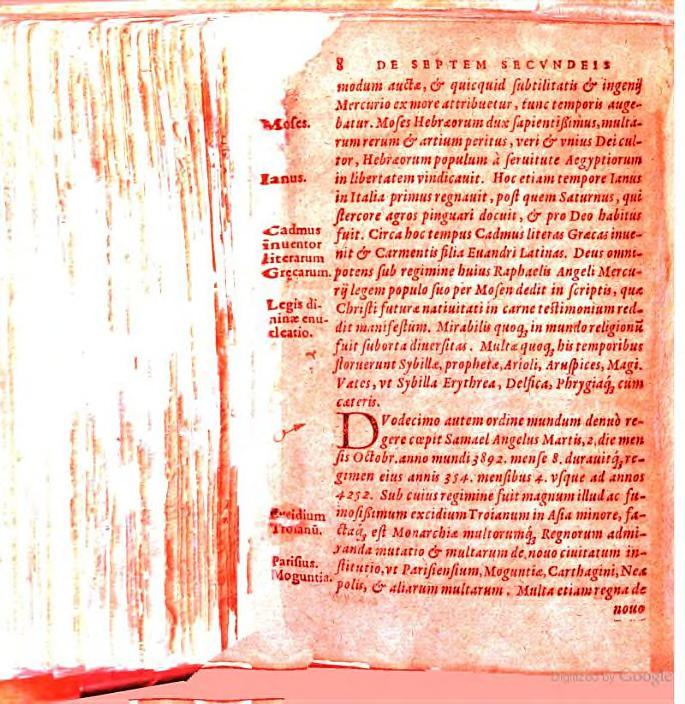 8 DE SEPTEM SECVNDEIS
modum auctæ, & quicquid subtilitatis & ingenij
Mercurio ex more attribuetur, tunc temporis auge-
Moses.
batur. Moses Hebræorum dux sapientißimus, multa-
rum rerum & artium peritus, veri & vnius Dei cul-
tor, Hebræorum populum à seruitute Aegyptiorum
Ianus.
in libertatem vindicauit. Hoc etiam tempore Ianus
in Italia primus regnauit, post quem Saturnus, qui
stercore agros pinguari docuit, & pro Deo habitus
Cadmus
inuentor
literarum
Grecarum.
fuit. Circa hoc tempus Cadmus literas Græcas inue-
nit & Carmentis filia Euandri Latinas. Deus omni-
potens sub regimine huius Raphaelis Angeli Mercu-
rij legem populo suo per Mosen dedit in scriptis, quæ
Legis di-
ninæ enu-
cleatio.
Christi futuræ natiuitati in carne testimonium red-
dit manifestum. Mirabilis quoq, in mundo religionū
fuit suborta diuersitas. Multæ quoq, his temporibus
floruerunt Sybillæ, prophetæ, Arioli, Aruspices, Magi.
Vates, vt Sybilla Erythrea, Delfica, Phrygiaq, cùm
cæteris.
DVodecimo autem ordine mundum denuò re-
gere cœpit Samael Angelus Martis, 2. die men
sis Octobr. anno mundi 3892. mense 8. durauitq, re-
gimen eius annis 354. mensibus 4. vsque ad annos
4252. Sub cuius regimine fuit magnum illud ac fa-
Excidium
Troianū.
mosißimum excidium Troianum in Asia minore, fa-
ctaq, est Monarchiæ multorumq, Regnorum admi-
randa mutatio & multarum de nouo ciuitatum in-
Parisius.
Moguntia.
stitutio, vt Parisiensium, Moguntiæ, Carthagini, Nea
polis, & aliarum multarum. Multa etiam regna de
nouo
Digitized by Google